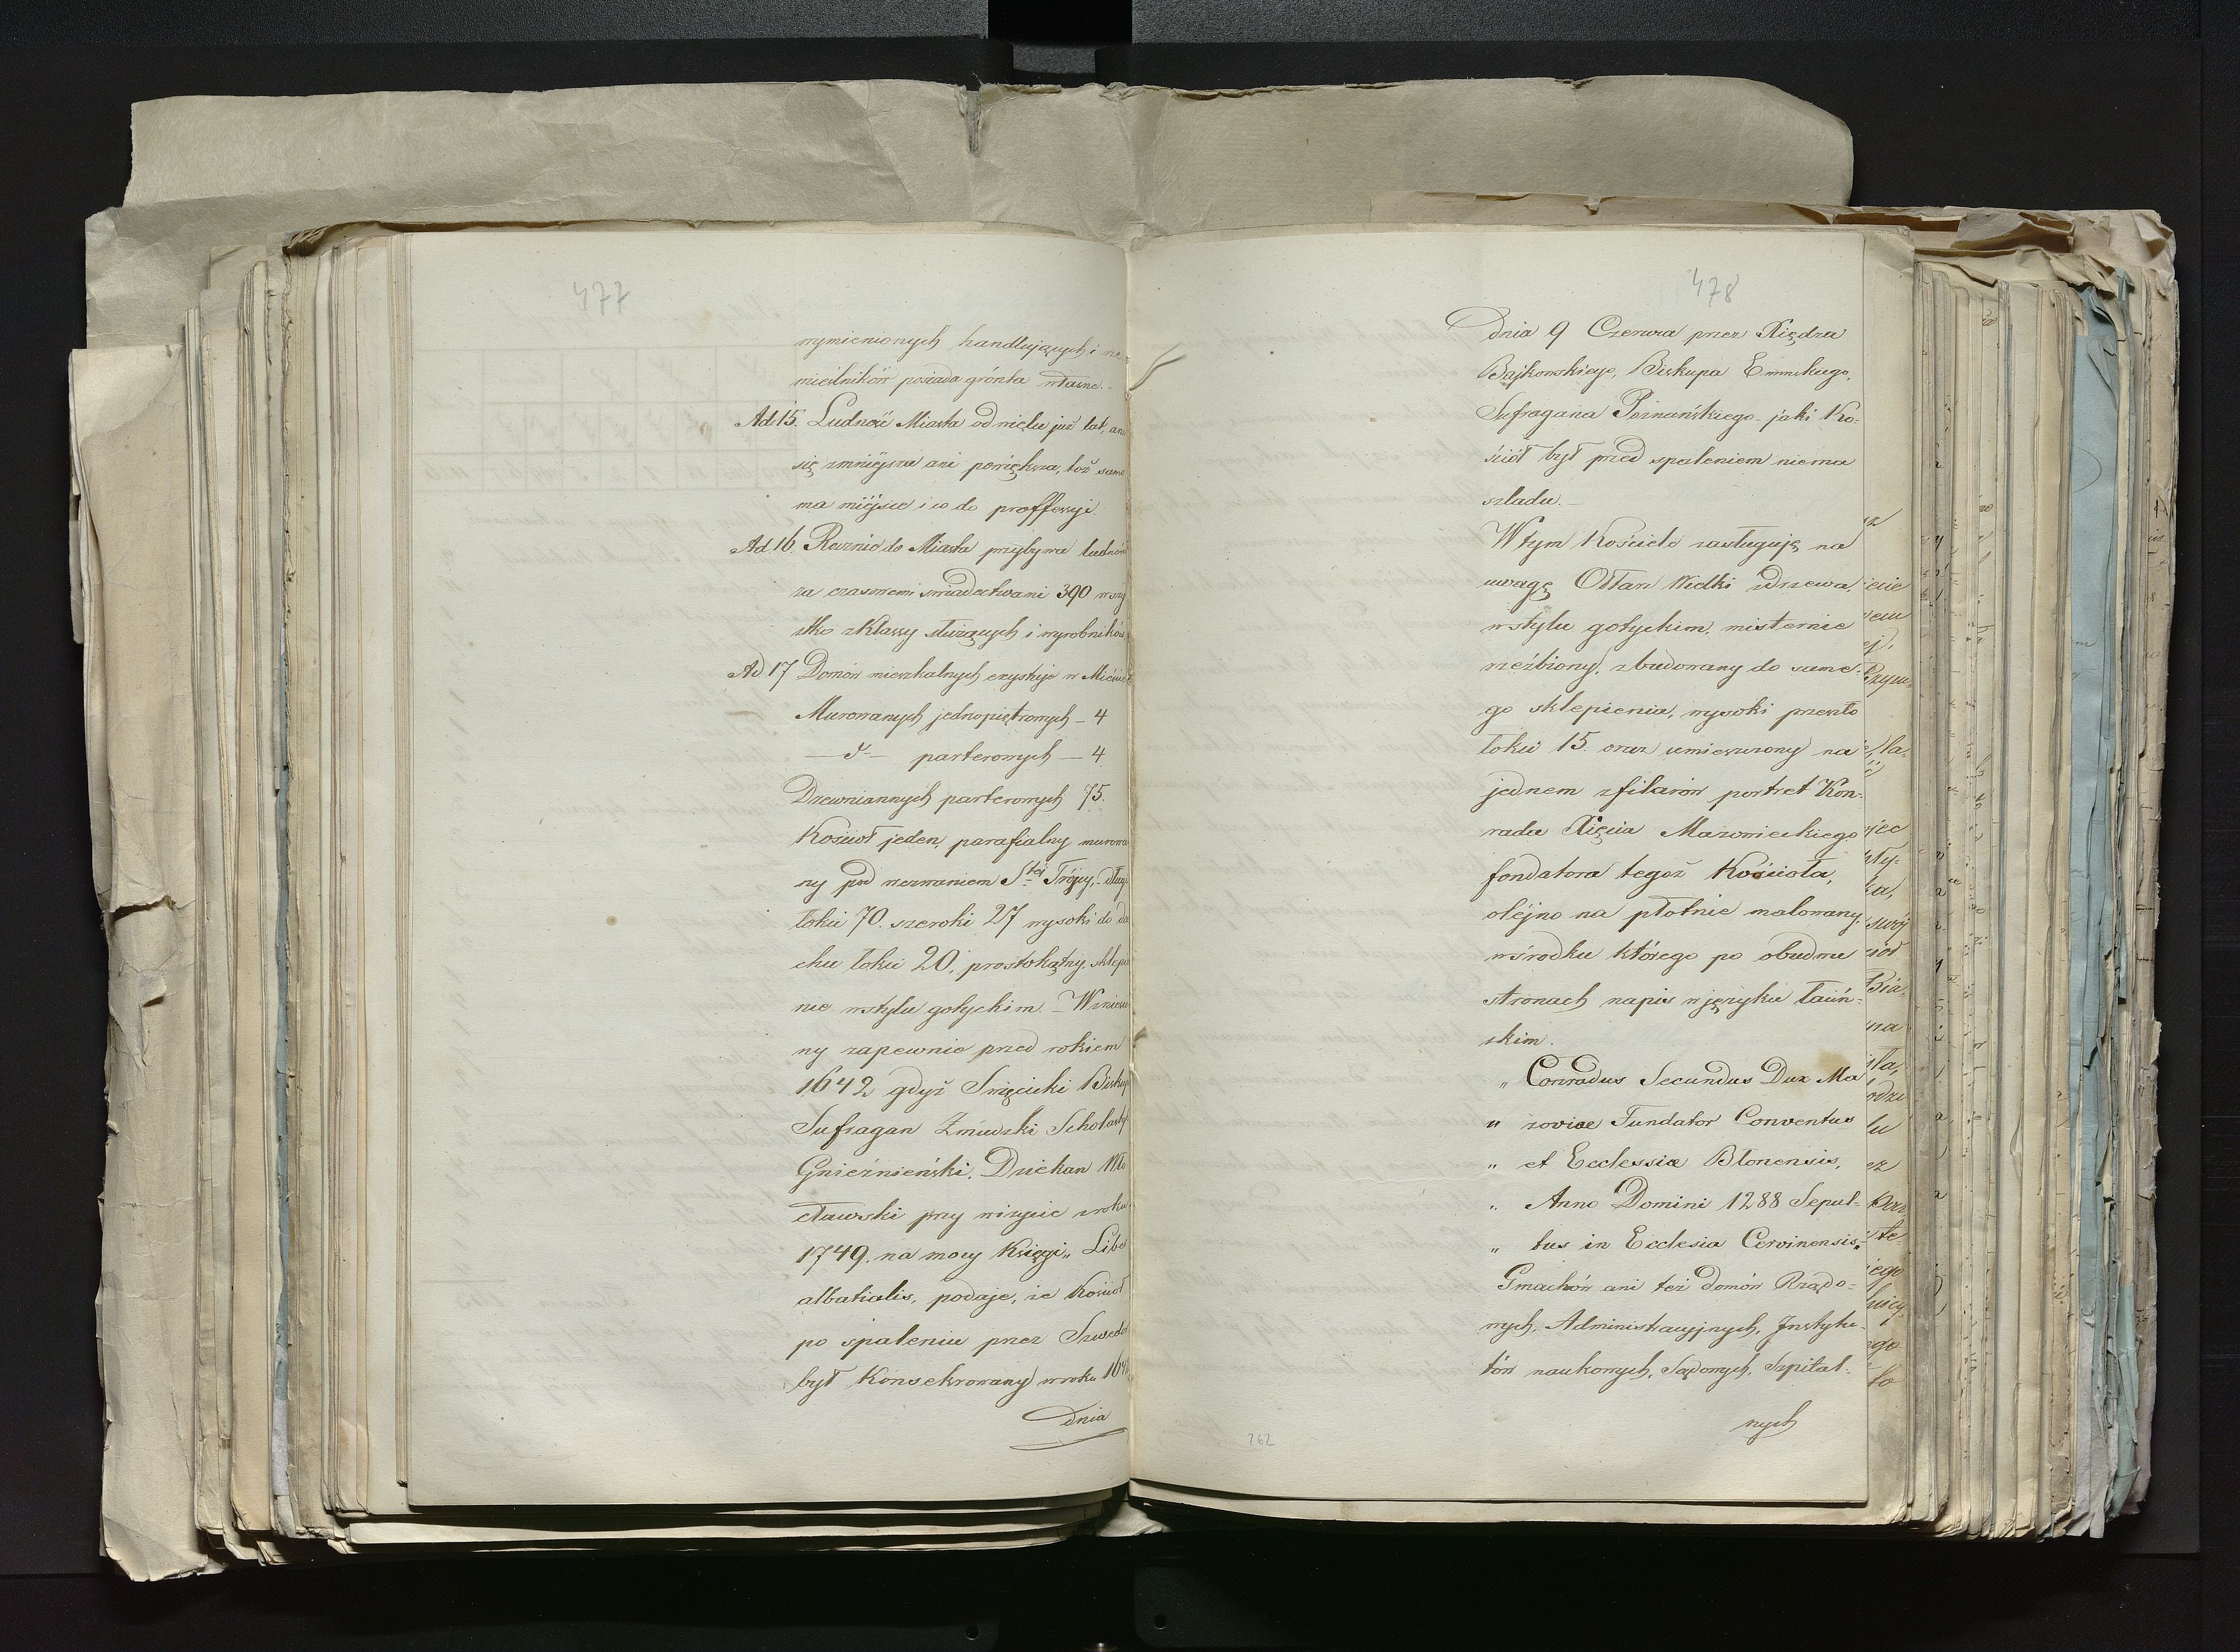 477
wymienionych handlujących i rze
mieślników posiada grónta własne.-
Ad 15. Ludność Miasta od wielu już lat, ani
się zmniéjsza ani powiększa, toż samo
ma miéjsce i co do proffessyi.
Ad 16. Rocznie do Miasta przybywa ludnośc
za czasowemi świadectwami 390 wszy
stko z Klassy służących i wyrobników
Ad 17 Domów mieszkalnych exystuje w Mieście
Murowanych jednopiętrowych — 4
— d° — parterowych — 4
Drewniannych parterowych 75.
Kościoł jeden, parafialny murowa
ny pod wezwaniem Stéj Trójcy, - długi
łokci 70. szeroki 27 wysoki do da
chu łokci 20, prostokątny, sklepio
nie w stylu gotyckim. - Wzniesio
ny zapewnie przed rokiem
1642 gdyż Święcicki Biskup
Sufragan Żmudzki Scholasty
Gnieźnieński, Dziekan Wło
cławski przy wizycie z roku
1749. na mocy Księgi „ Liber
albatialis, podaje, że Kościoł
po spaleniu przez Szwedów
był Konsekrowany w roku 164
dnia
478
Dnia 9 Czerwca przez Xiędza
Bajkowskiego, Biskupa Ennskiego,
Sufragana Poznańskiego - jaki Ko-
ściół był przed spaleniem niema
szladu. -
W tym Kościele zasługuję na
uwagę Ołtarz Wielki z drzewa,
w stylu gotyckim, misternie
rzeźbiony, zbudowany do same-
go sklepienia, wysoki przeszło
łokci 15. oraz umieszczony na
jednem z filarów portret Kon-
rada Xięcia Mazowieckiego
fondatora tegoż Kościoła,
oléjno na płótnie malowany,
w środku którego po obudwu
stronach napis w języku łaciń-
skim.
„ Conradus Secundus Dux Ma
„ zoviae Fundator Conventus
„ et Ecclessiæ Blonensis,
„ Anno Domini 1288 Sepul-
„ tus in Ecclesia Cervinensis„
Gmachów ani też domów Rządo-
wych, Administracyjnych, Instytu-
tów naukowych, Sądowych, Szpital-
nych
262